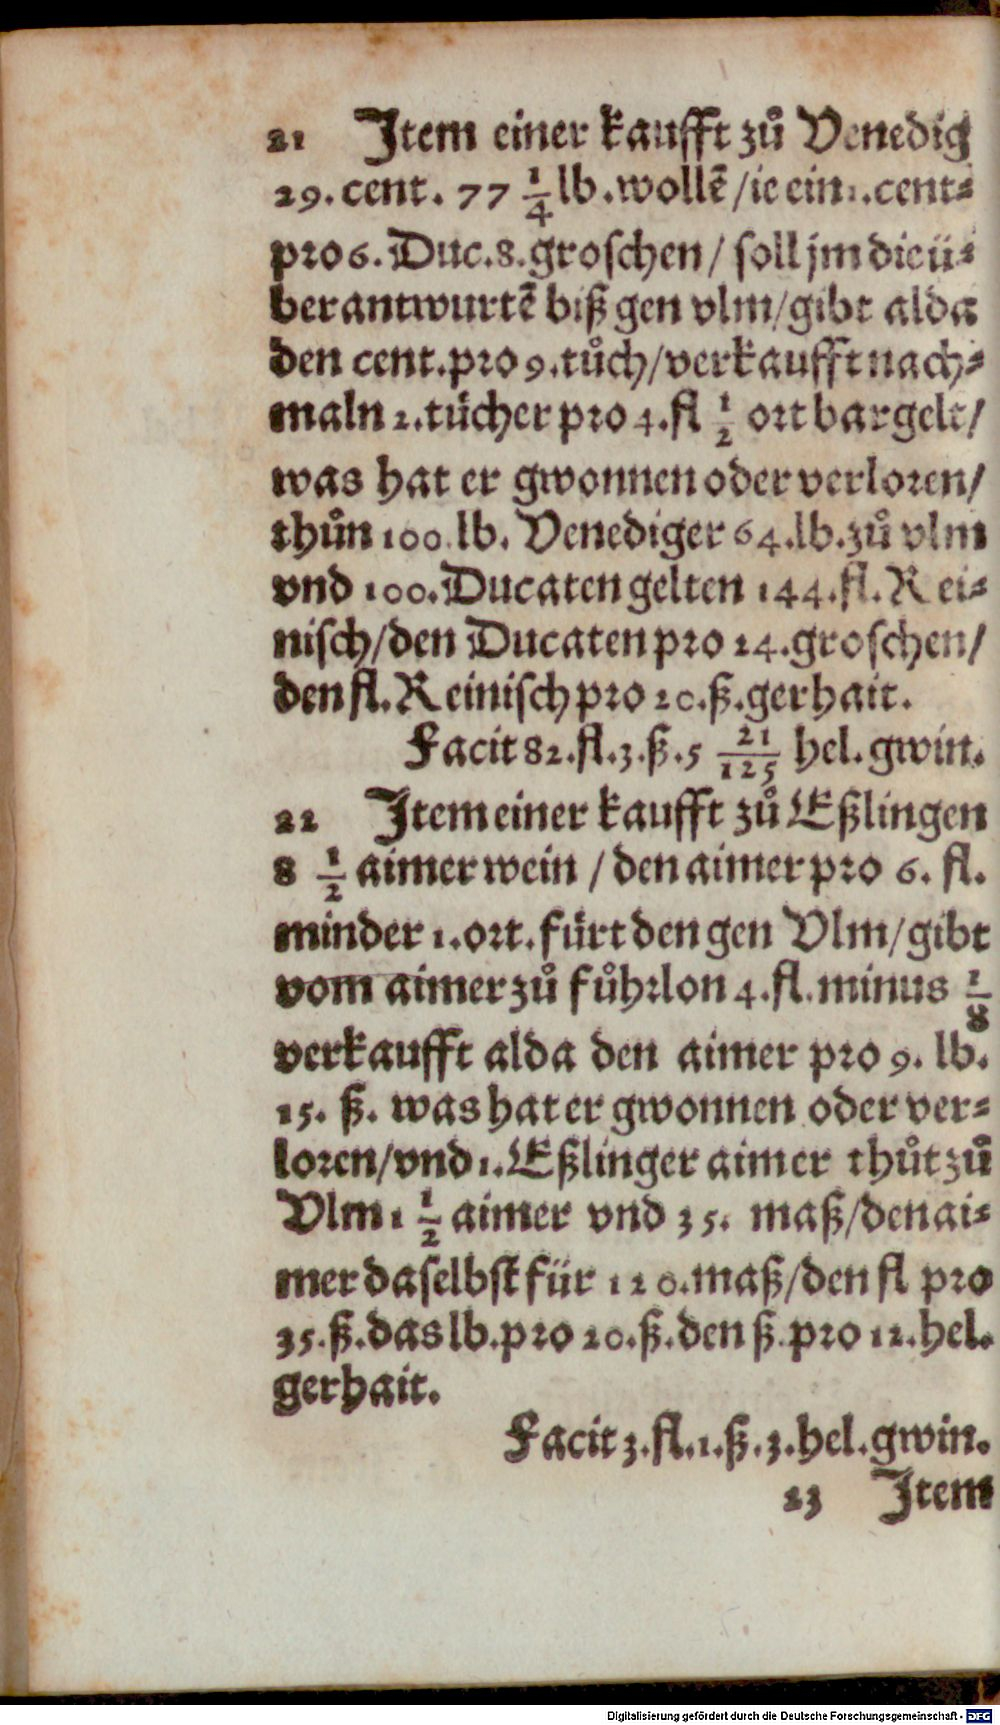 21 Jtem einer kaufft zů Venedig
29. cent. 77 1/4 lb. wollẽ /ie ein 1. cent⸗
pro 6. Duc. 8. groschen / soll jm die ü⸗
berantwurtẽ biß gen vlm/gibt alda
den cent. pro 9. tůch/verkaufft nach⸗
maln 2. tücher pro 4. fl 1/2 ort bar gelt/
was hat er gwonnen oder verloren/
thůn 100 lb. Venediger 64. lb. zů vlm
vnd 100. Ducaten gelten 144. fl. Rei⸗
nisch/den Ducaten pro 24. groschen/
den fl. Reinisch pro 20. ß. gerhait.
Facit 82. fl. 3. ß. 5 21/125 hel. gwin.
22 Jtem einer kaufft zů Eßlingen
8 1/2 aimer wein / den aimer pro 6. fl.
minder 1. ort. fürt den gen Vlm/gibt
vom aimer zů fůhrlon 4. fl. minus 1/8
verkaufft alda den aimer pro 9. lb.
15. ß. was hat er gwonnen oder ver⸗
loren/vnd 1. Eßlinger aimer thůt zů
Vlm 1 1/2 aimer vnd 35. maß/den ai⸗
mer daselbst für 120. maß/den fl pro
35. ß. das lb. pro 20. ß. den ß. pro 12. hel.
gerhait.
Facit 3. fl. 1. ß. 3. hel. gwin.
23 Jtem
Digitalisierung gefördert durch die Deutsche Forschungsgemeinschaft - DFG